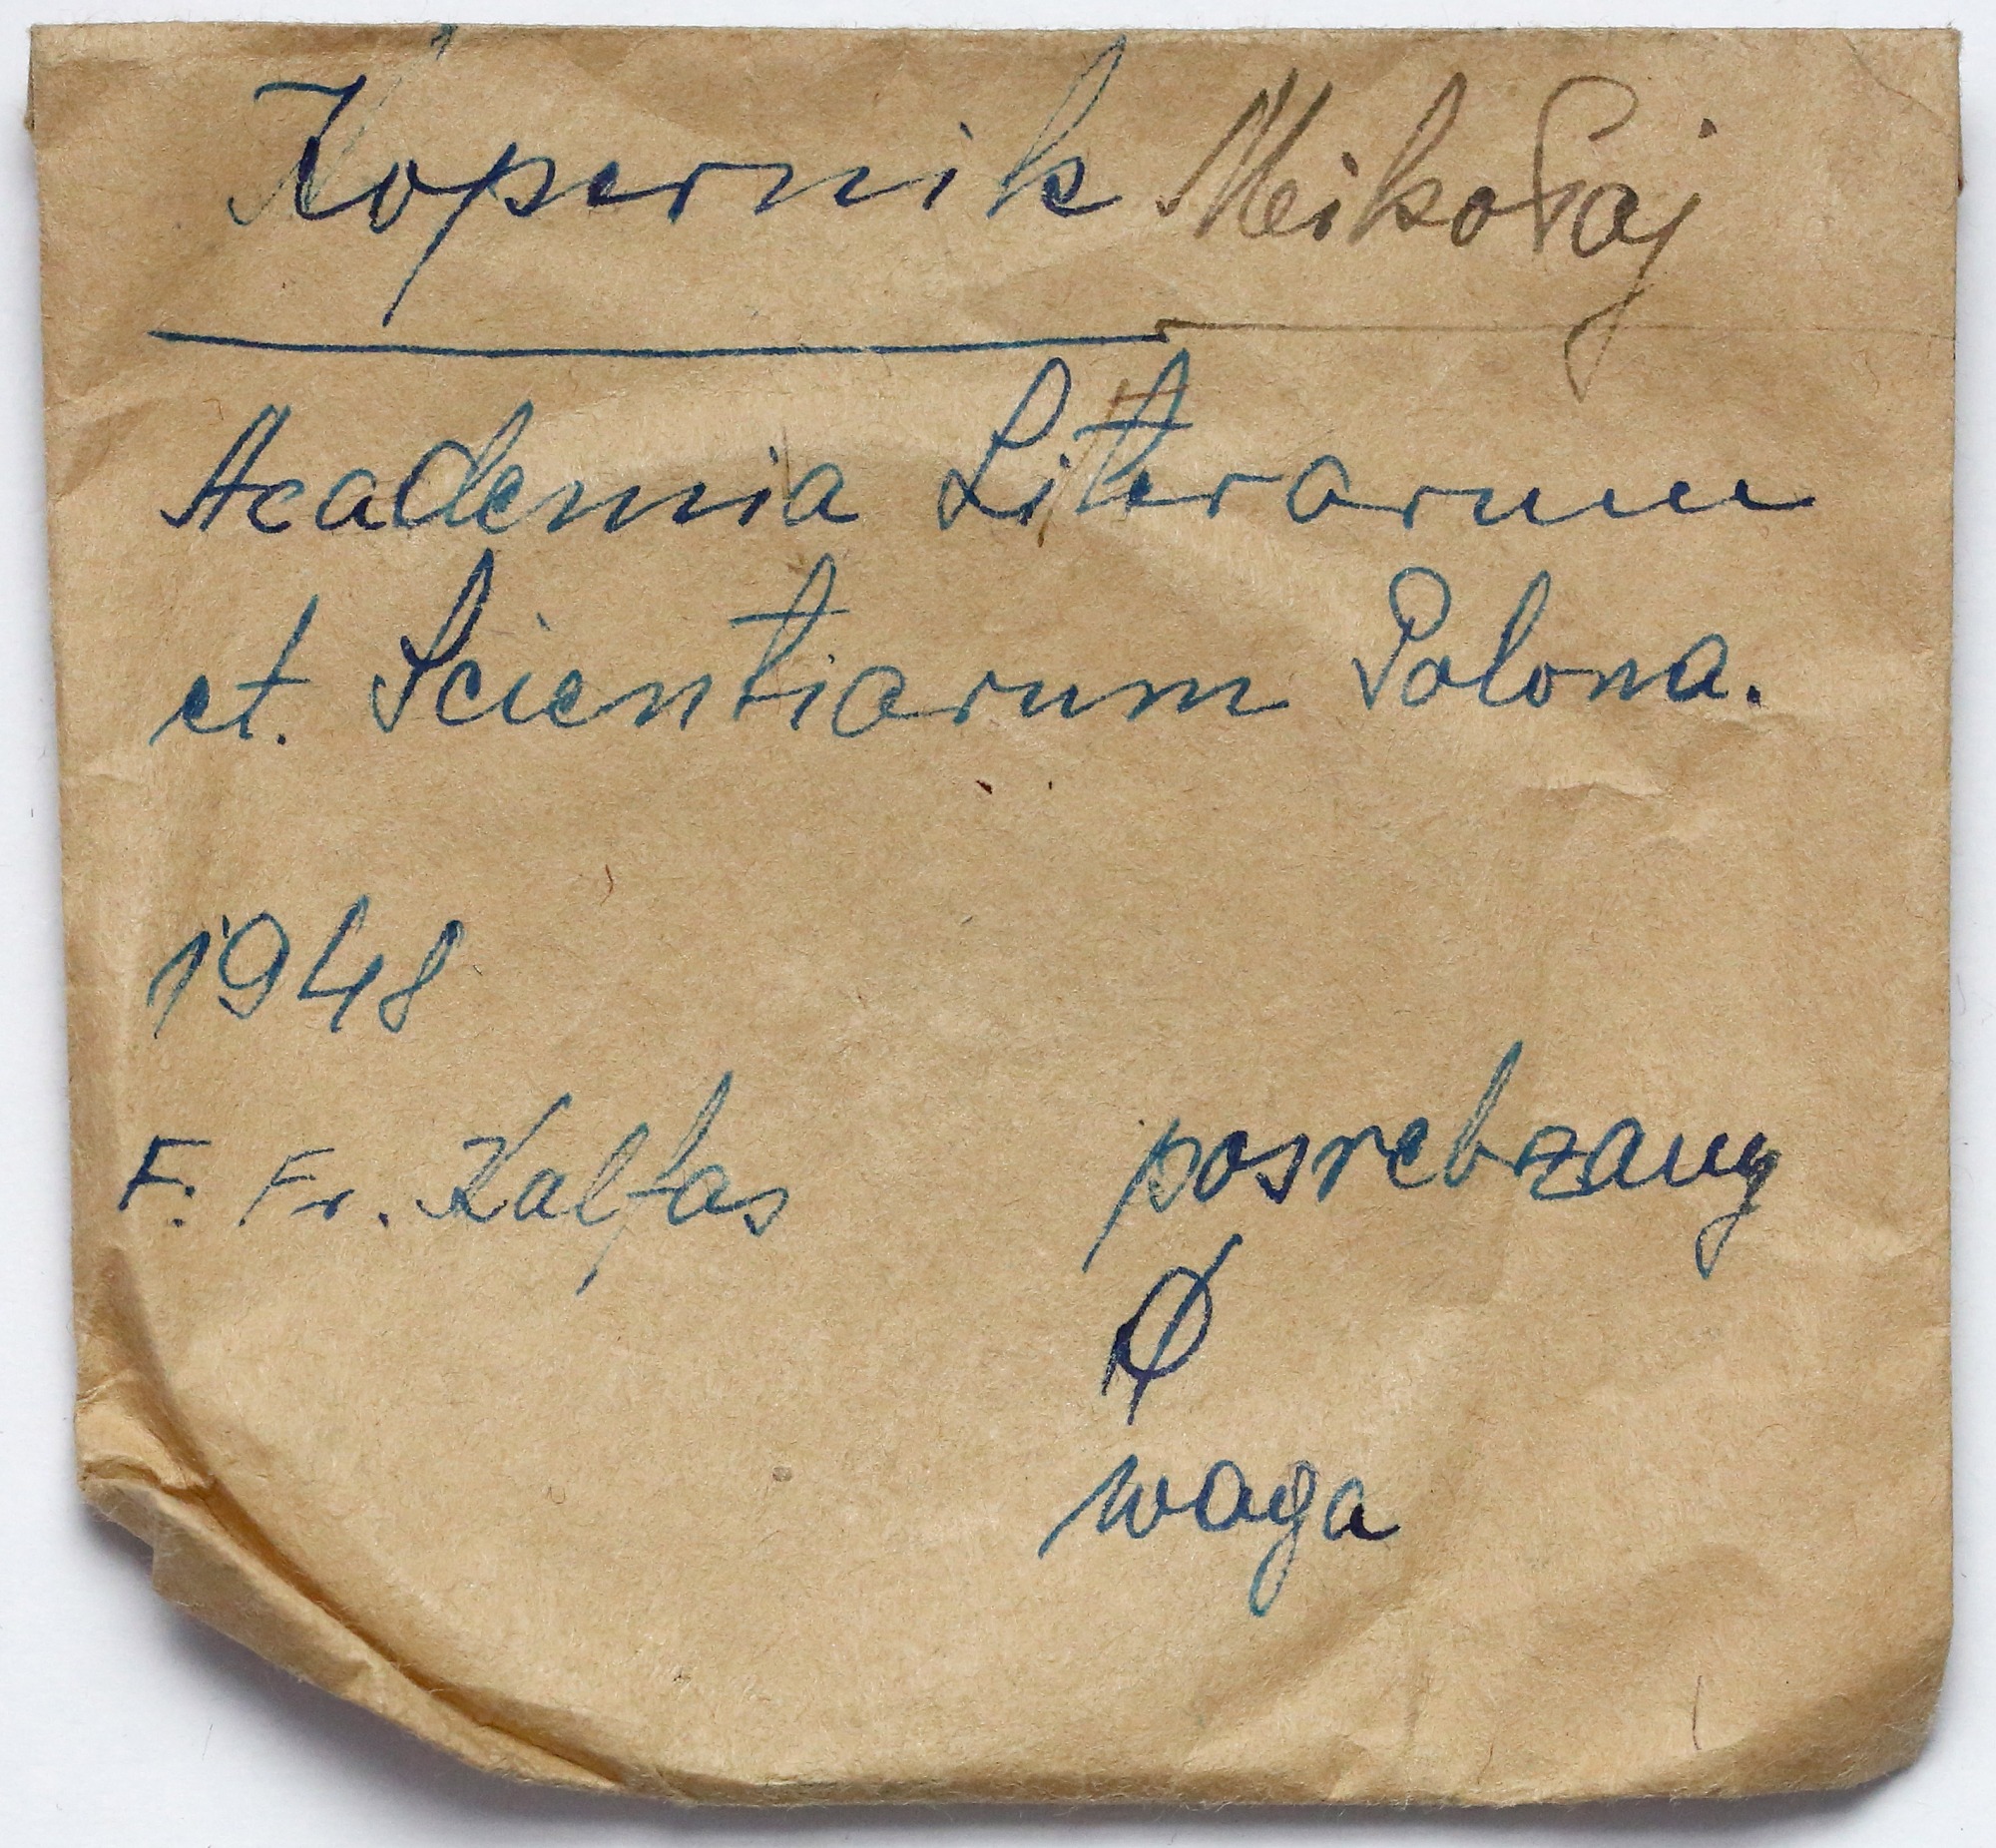 Kopernik Mikołaj
Academia Litterarum
et. Scientiarum Polona.
1948
F. Fr. Kalfas
posrebrzany
Ø
waga